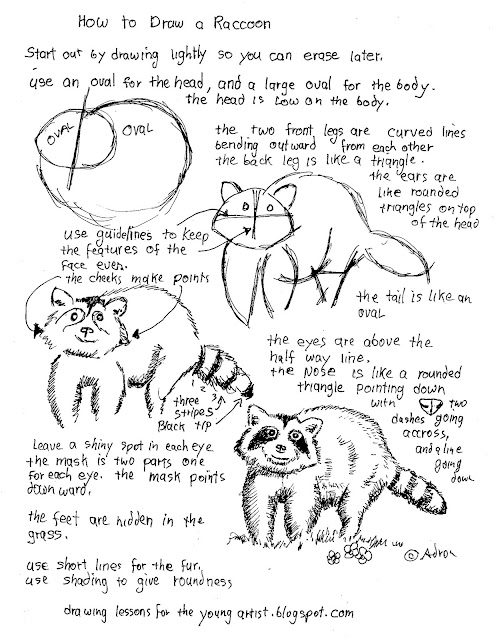 How to Draw a Raccoon
Start out by drawing lightly so you can erase later.
use an oval for the head, and a large oval for the body.
the head is low on the body.
OVAL
OVAL
the two front legs are curved lines
bending outward from each other
the back leg is like a triangle.
the ears are
like rounded
triangles on top
of the head
use guidelines to keep
the features of the
face even.
the cheeks make points
the tail is like an
oval
the eyes are above the
half way line.
the Nose is like a rounded
triangle pointing down
with two
dashes going
accross,
and a line
going
down
1 2 3
three
stripes
Black tip
Leave a shiny spot in each eye
the mask is two parts one
for each eye. the mask points
down ward.
the feet are hidden in the
grass.
use short lines for the fur.
use shading to give roundness
© Adron
drawing lessons for the young artist.blogspot.com